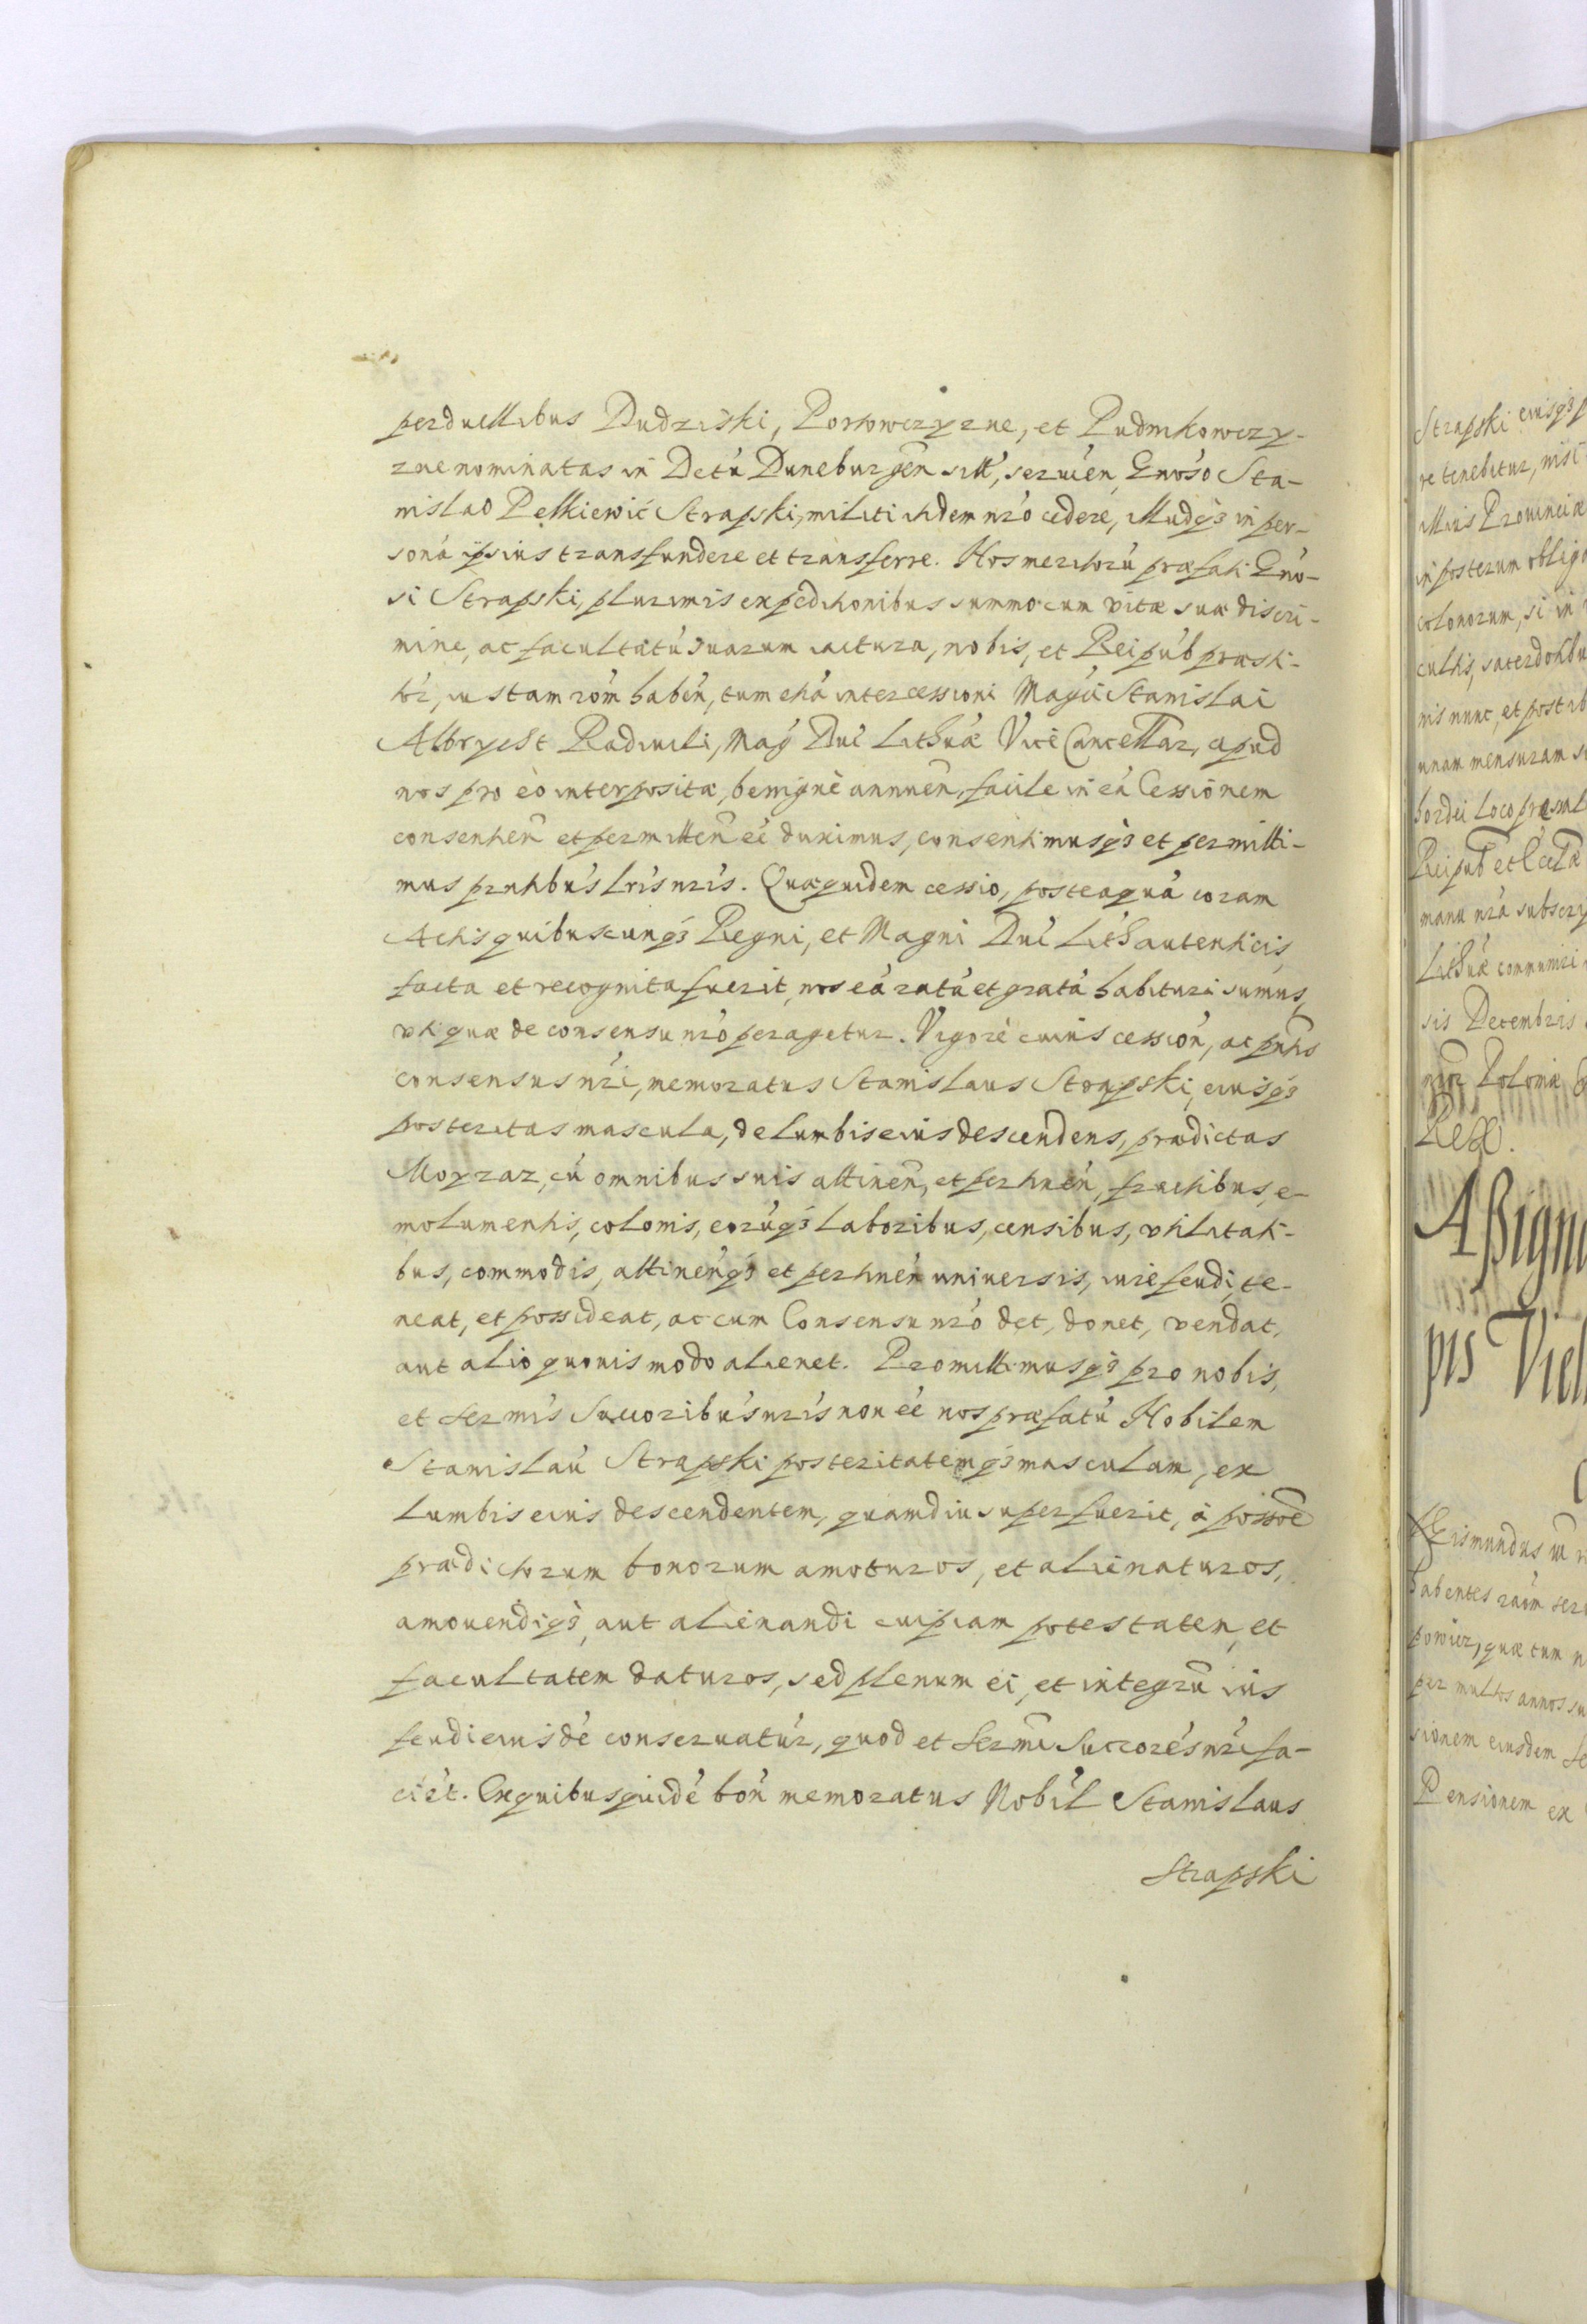 perduellibus Dudziski, Porzowczyzne, et Pudmkowczy-
zne nominatas in Dctú Duneburgeñ sitt, seruień, Gnoso Sta-
nislao Pelkiewić Strapski, militi itidem nró cedere, illudq3 in per-
soná ipsius transfundere et transferre. Nos meritorú præfati Gno-
si Strapski, plurimis expeditionibus summo cum vitæ suæ discri-
mine, ac facultatú suarum iactura, nobis, et Reipúb præsti-
tor, iustam róm habeń, tum etiá intercessioni Magci Stanislai
Albrycht Radiuili, Mag Duĉ Lithuæ Vice Cancellar, apud
nos pro eo interpositæ, benignè annueń, facile in eá Cessionem
consentieñ et permitteñ eé duximus, consentimusq3 et permitti-
mus pntibús lrís nrís. Quæquidem cessio, posteaquá coram
Actis quibuscunq3 Regni, et Magni Duĉ Lith autenticis,
facta et recognita fuerit, nos eá ratá et gratá habituri sumus,
vti quæ de consensu nró peragetur. Vigore cuius cession, ac pntis
consensus nri, memoratus Stanislaus Strapski, eiusq3
posteritas mascula, de lumbis eius descendens, prædictas
Moyzaz, cú omnibus suis attineñ, et pertineń, fructibus, e-
molumentis, colonis, eorúq3 laboribus, censibus, vtilitati-
bus, commodis, attineńq3 et pertineń uniuersis, iure feudi, te-
neat, et possideat, ac cum Consensu nró det, donet, vendat,
aut alio quouis modo alienet. Promittimusq3 pro nobis,
et Sermis Succoribús nrís non eé nos præfatú Nobilem
Stanislaú Strapski posteritatemq3 masculam, ex
lumbis eius descendentem, quamdiu superfuerit, à possoe
prædictorum bonorum amoturos, et alienaturos,
amouendiq3, aut alienandi cuipiam potestatem, et
facultatem daturos, sed plenum ei, et integrú ius
feudi eiusdé conseruatúr, quod et Sermi Succorés nri fa-
ciét. Ex quibus quidé boń memoratus Nobíl Stanislaus
Strapski
Strapski eiusq3 p
re tenebitur, nisi
illius Prouinciæ
in posterum oblig
colonorum, si in
cultis, sacerdotibu
nis nunc, et post ib
unam mensuram s
hordei loco præsul
Reipub et Cctæ
manu nrá subscry
Lithuæ communici
sis Decembris
nror Poloniæ
Rex.
Aßign
pis Viel
habentes raóm ser
powicz, quæ tum n
per multos annos su
sionem eiusdem se
Pensionem ex